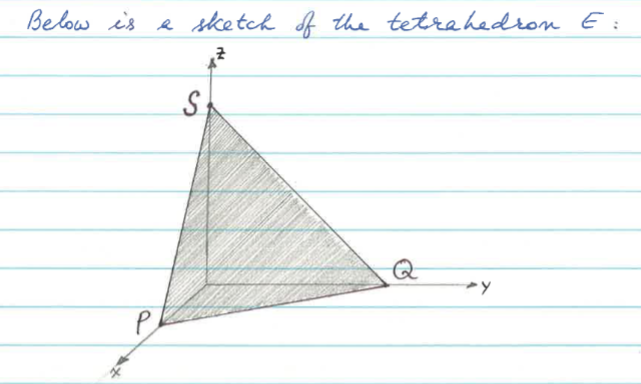 Below is a sketch of the tetrahedron E :
z
S
Q
y
P
x